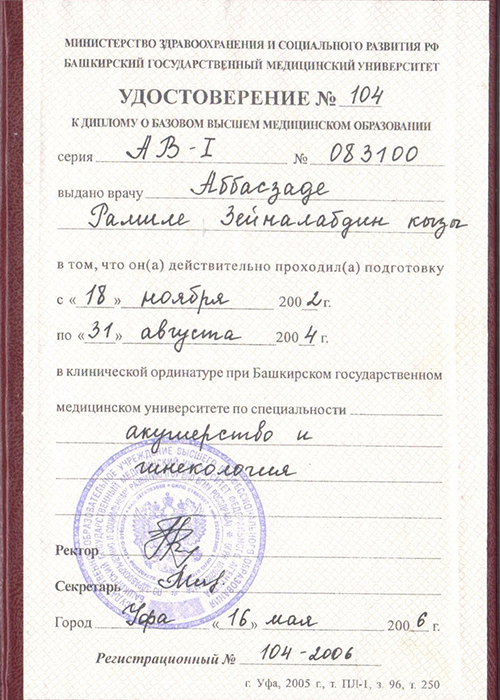 МИНИСТЕРСТВО ЗДРАВООХРАНЕНИЯ И СОЦИАЛЬНОГО РАЗВИТИЯ РФ
БАШКИРСКИЙ ГОСУДАРСТВЕННЫЙ МЕДИЦИНСКИЙ УНИВЕРСИТЕТ
УДОСТОВЕРЕНИЕ № 104
К ДИПЛОМУ О БАЗОВОМ ВЫСШЕМ МЕДИЦИНСКОМ ОБРАЗОВАНИИ
серия АВ-I № 083100
выдано врачу Аббасзаде
Рамиле Зейналабдин кызы
в том, что он(а) действительно проходил(а) подготовку
с «18» ноября 2002 г.
по «31» августа 2004 г.
в клинической ординатуре при Башкирском государственном
медицинском университете по специальности
акушерство и
гинекология
Ректор
Секретарь
Город Уфа «16» мая 2006 г.
Регистрационный № 104-2006
г. Уфа, 2005 г., т. ПЛ-1, з. 96, т. 250